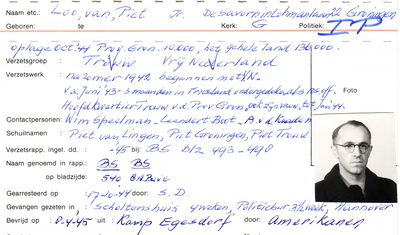 Naam etc.: Loo, van, Piet Jr. De Savornin Lohmanlaan 22 Groningen
Geboren: te Kerk: G Politiek:
oplage Oct. '44 Prov. Gron. 10.000, het gehele land 130.000.
Verzetsgroep : Trouw Vrij Nederland
Verzetswerk : na zomer 1942 begonnen met V.N.
v.a. juni '43 - 3 maanden in Friesland ondergedoken als res. off.
Hoofdkwartier Trouw v.d. Prov. Gron, ook zijn vrouw, tot jan '44.
Foto
Contactpersonen: Wim Speelman - Leendert Boot - A. v.d.
Schuilnamen : Piet van Lingen, Piet Groningen, Piet Trouw
Verzetsrapp. ingel. dd. : -45 bij: BS blz 493-498
Naam genoemd in rapp.: BS BS
op bladzijde: 540
Gearresteerd op : 17-10-44 door: S.D.
Gevangen gezeten in : Scholtenshuis 4 weken, Politieburo 3½ week, Hannover
Bevrijd op : 8-4-45 uit: Kamp Egesdorf door: Amerikanen